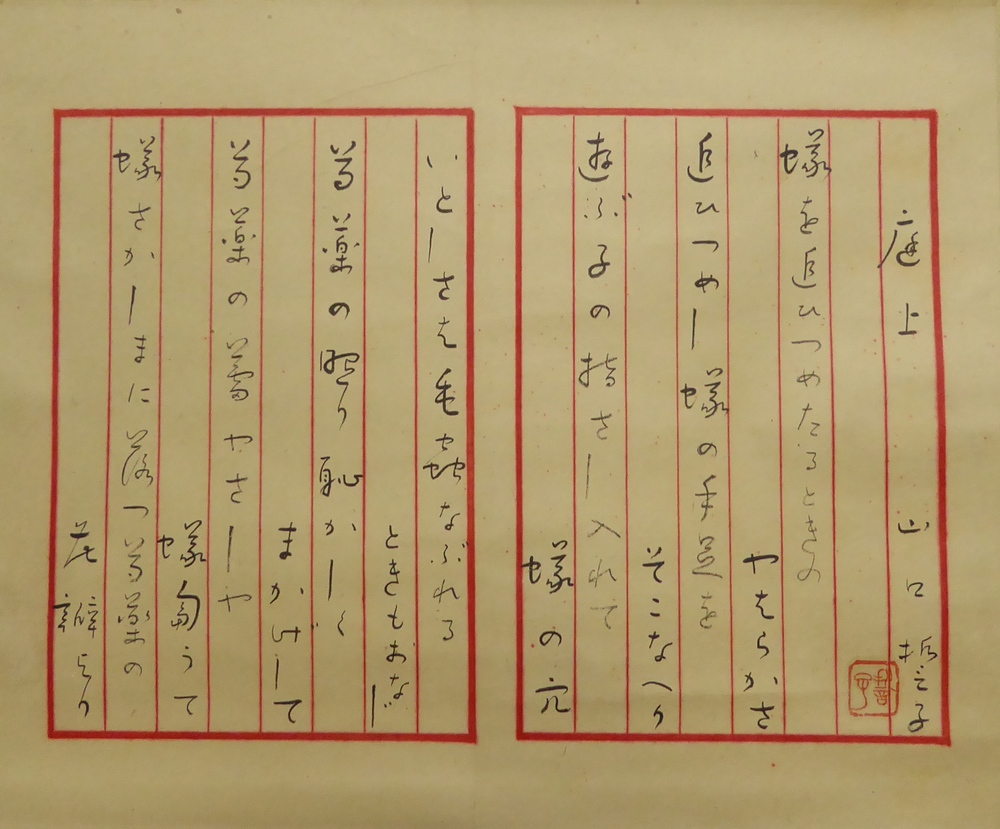 庭上　山口誓子
蟻を追ひつめたるときの
やはらかさ
追ひつめし蟻の手足を
そこなへり
遊ぶ子の指さし入れて
蟻の穴
いとしさは毛蟲なぶれる
ときもおなじ
芍薬の照り恥かしく
まかげして
芍薬の蕾やさしや
蟻匍うて
蟻さかしまに落つ芍薬の
花瓣より